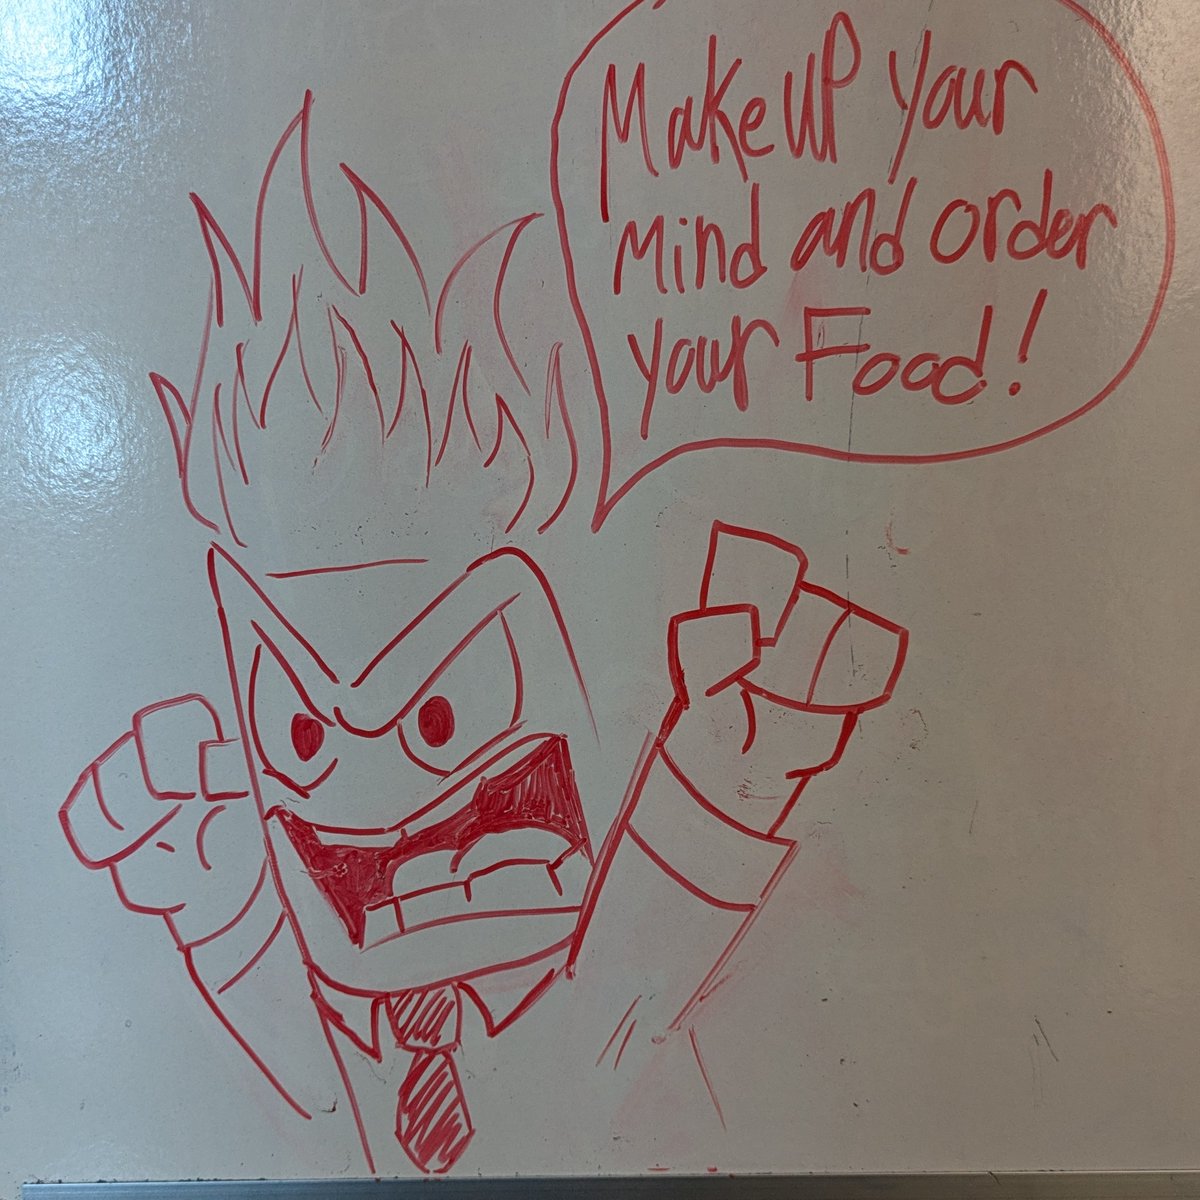 Make up your
mind and order
your Food!